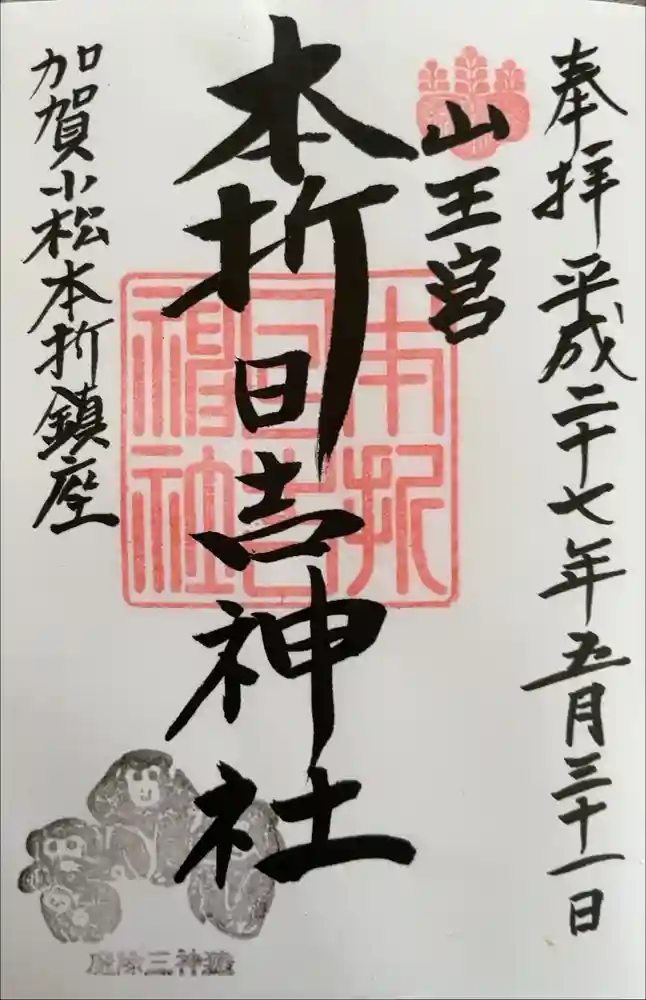 奉拝 平成二十七年五月三十一日
山王宮
本折日吉神社
加賀小松本折鎮座
本折
日吉
神社